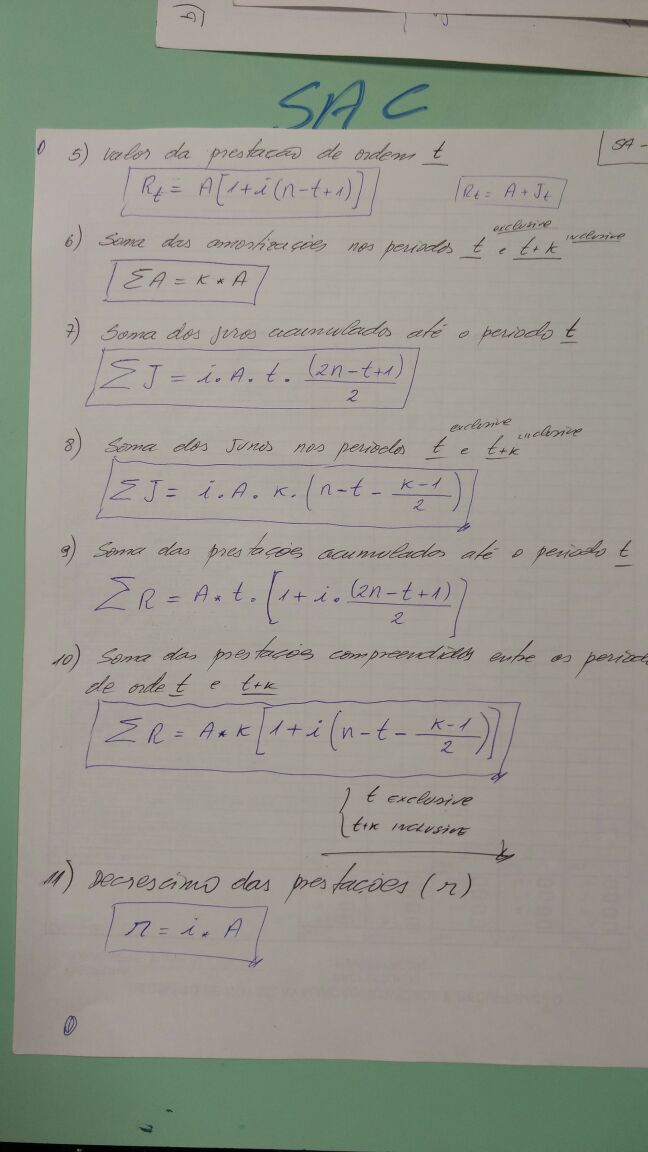 SAC
5) Valor da prestação de ordem t
R_t = A[1+i(n-t+1)]
R_t = A + J_t
SA-
6) Soma das amortizações nos periodos t exclusive e t+k inclusive
ΣA = K * A
7) Soma dos juros acumulados até o periodo t
ΣJ = i . A . t . (2n-t+1)/2
8) Soma dos Juros nos periodos t exclusive e t+k inclusive
ΣJ = i . A . K . (n-t - (K-1)/2)
9) Soma das prestações acumuladas até o periodo t
ΣR = A * t . [1 + i . (2n-t+1)/2]
10) Soma das prestações compreendidas entre os periodo
de orde t e t+k
ΣR = A * K [1 + i (n-t - (K-1)/2)]
{ t exclusive
t+k inclusive
11) Decrescimo das prestações (r)
r = i * A